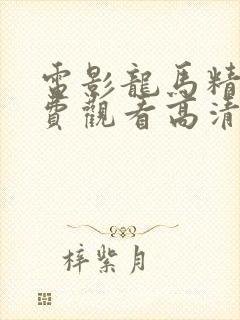 電影龍馬精
費觀看高清
梓紫月